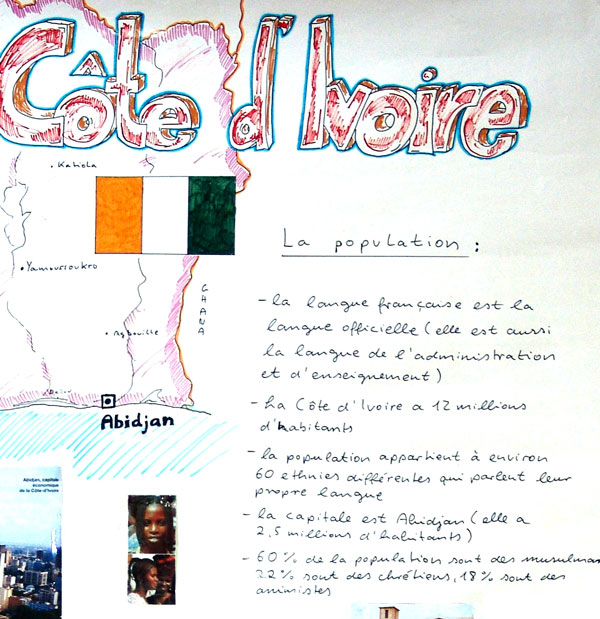 Côte d'Ivoire
Katiola
Yamoussoukro
GHANA
Agboville
Abidjan
La population :
- la langue française est la
langue officielle (elle est aussi
la langue de l'administration
et d'enseignement)
- La Côte d'Ivoire a 12 millions
d'habitants
- la population appartient à environ
60 ethnies différentes qui parlent leur
propre langue
- la capitale est Abidjan (elle a
2,5 millions d'habitants)
- 60% de la population sont des musulmans
22% sont des chrétiens, 18% sont des
animistes
Abidjan, capitale
économique
de la Côte-d'Ivoire